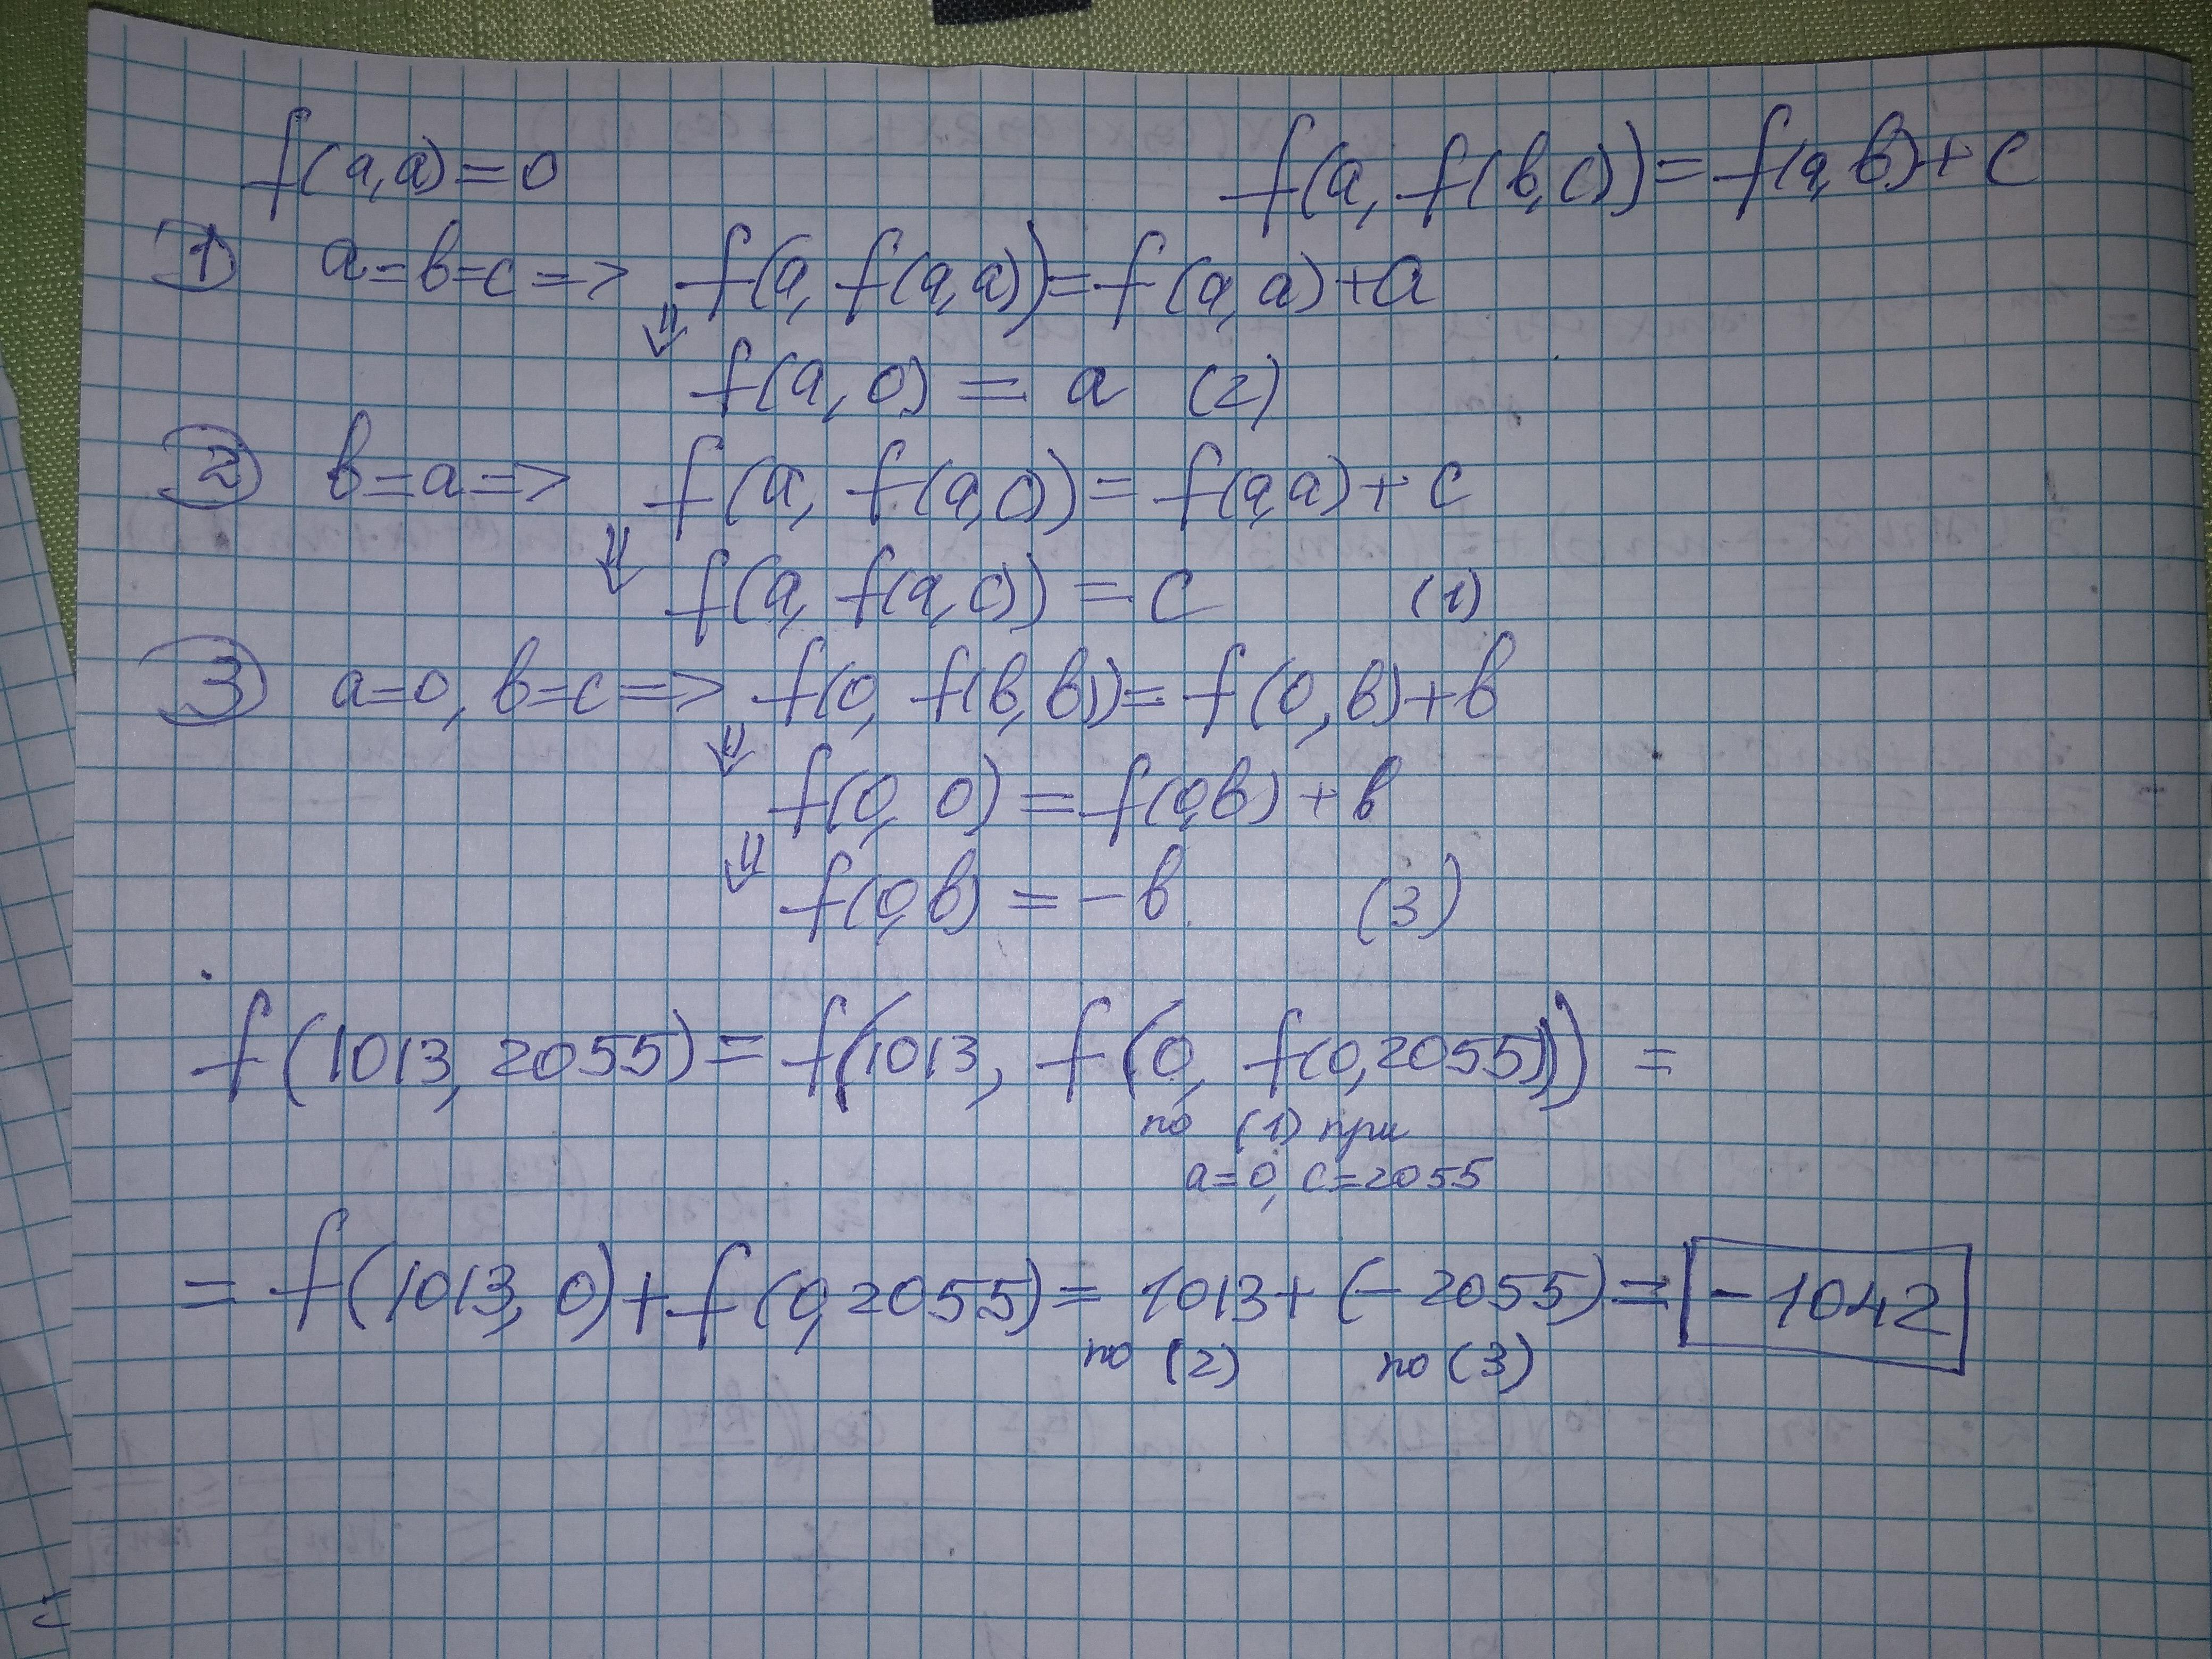 f(a,a)=0 f(a, f(в,c))=f(a,в)+c
1 a=в=c=> f(a, f(a,a))=f(a,a)+a
⇓ f(a,0) = a (2)
2 в=a=> f(a, f(a,c))=f(a,a)+c
⇓ f(a, f(a,c)) = c (1)
3 a=0, в=c=> f(0, f(в,в))=f(0,в)+в
⇓ f(0,0)=f(0,в)+в
⇓ f(0,в) = -в (3)
f(1013,2055)=f(1013, f(0, f(0,2055))) =
по (1) при
a=0, c=2055
= f(1013,0)+f(0,2055)= 1013+(-2055)= -1042
по (2) по (3)